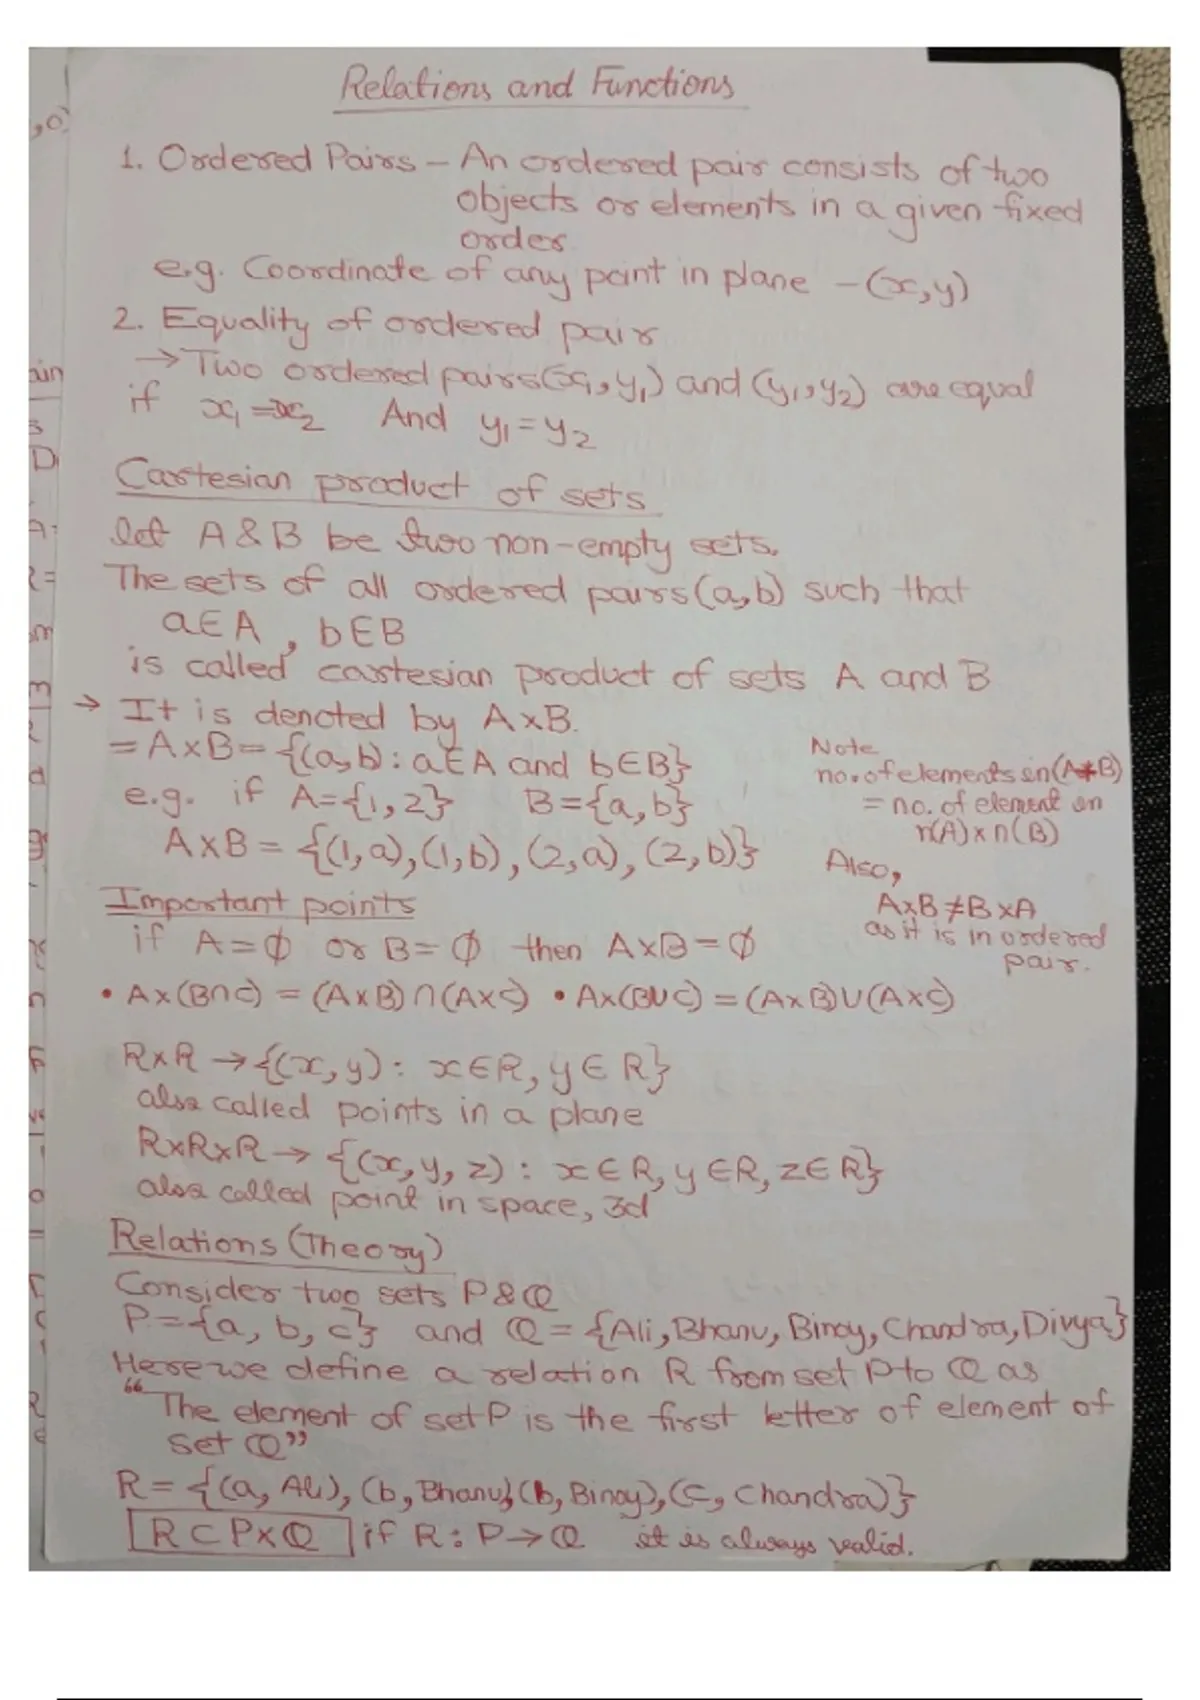 Relations and Functions
1. Ordered Pairs – An ordered pair consists of two
objects or elements in a given fixed
order
e.g. Coordinate of any point in plane – (x,y)
2. Equality of ordered pair
→ Two ordered pairs (x₁, y₁) and (y₁, y₂) are equal
if x₁ = x₂ And y₁ = y₂
Cartesian product of sets
let A & B be two non-empty sets.
The sets of all ordered pairs (a,b) such that
a∈A , b∈B
is called cartesian product of sets A and B
→ It is denoted by A×B.
= A×B = {(a,b) : a∈A and b∈B}
e.g. if A={1,2} B={a,b}
A×B = {(1,a),(1,b),(2,a),(2,b)}
Note
no. of elements in (A*B)
= no. of element in
n(A)×n(B)
Also,
A×B ≠ B×A
as it is in ordered
pair.
Important points
if A=∅ or B=∅ then A×B=∅
• A×(B∩C) = (A×B)∩(A×C) • A×(B∪C) = (A×B)∪(A×C)
R×R → {(x,y) : x∈R, y∈R}
also called points in a plane
R×R×R → {(x,y,z) : x∈R, y∈R, z∈R}
also called point in space, 3d
Relations (Theory)
Consider two sets P & Q
P={a,b,c} and Q={Ali, Bhanu, Binoy, Chandra, Divya}
Here we define a relation R from set P to Q as
“The element of set P is the first letter of element of
set Q”
R = {(a, Ali), (b, Bhanu), (b, Binoy), (c, Chandra)}
R ⊂ P×Q if R : P→Q it is always valid.